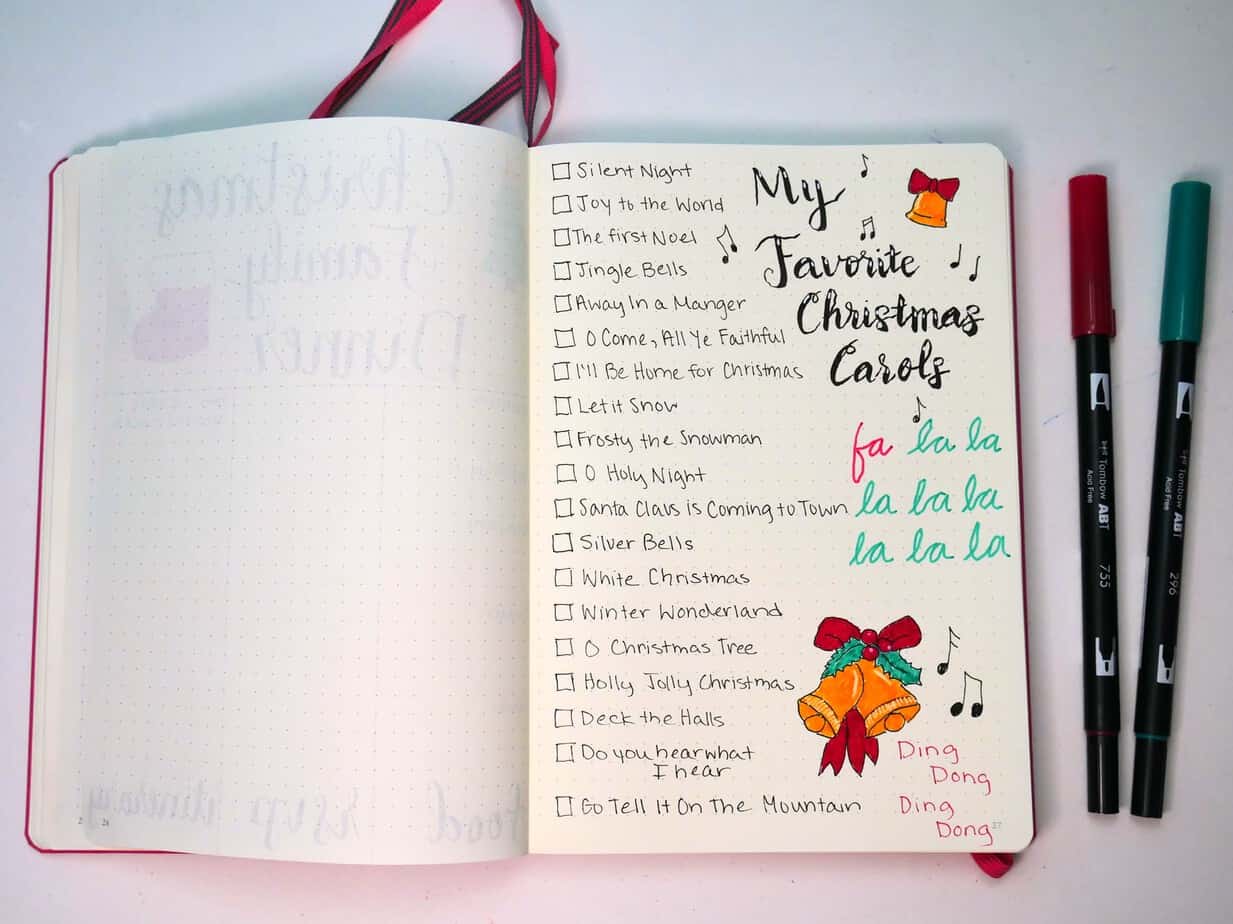 Christmas
Family
Dinner
26
Silent Night
Joy to the World
The first Noel
Jingle Bells
Away In a Manger
O Come, All Ye Faithful
I'll Be Home for Christmas
Let it Snow
Frosty the Snowman
O Holy Night
Santa Claus is Coming to Town
Silver Bells
White Christmas
Winter Wonderland
O Christmas Tree
Holly Jolly Christmas
Deck the Halls
Do you hear what
I hear
Go Tell It On The Mountain
My
Favorite
Christmas
Carols
fa la la
la la la
la la la
Ding
Dong
Ding
Dong
27
Tombow ABT
Acid Free
755
Tombow ABT
Acid Free
296